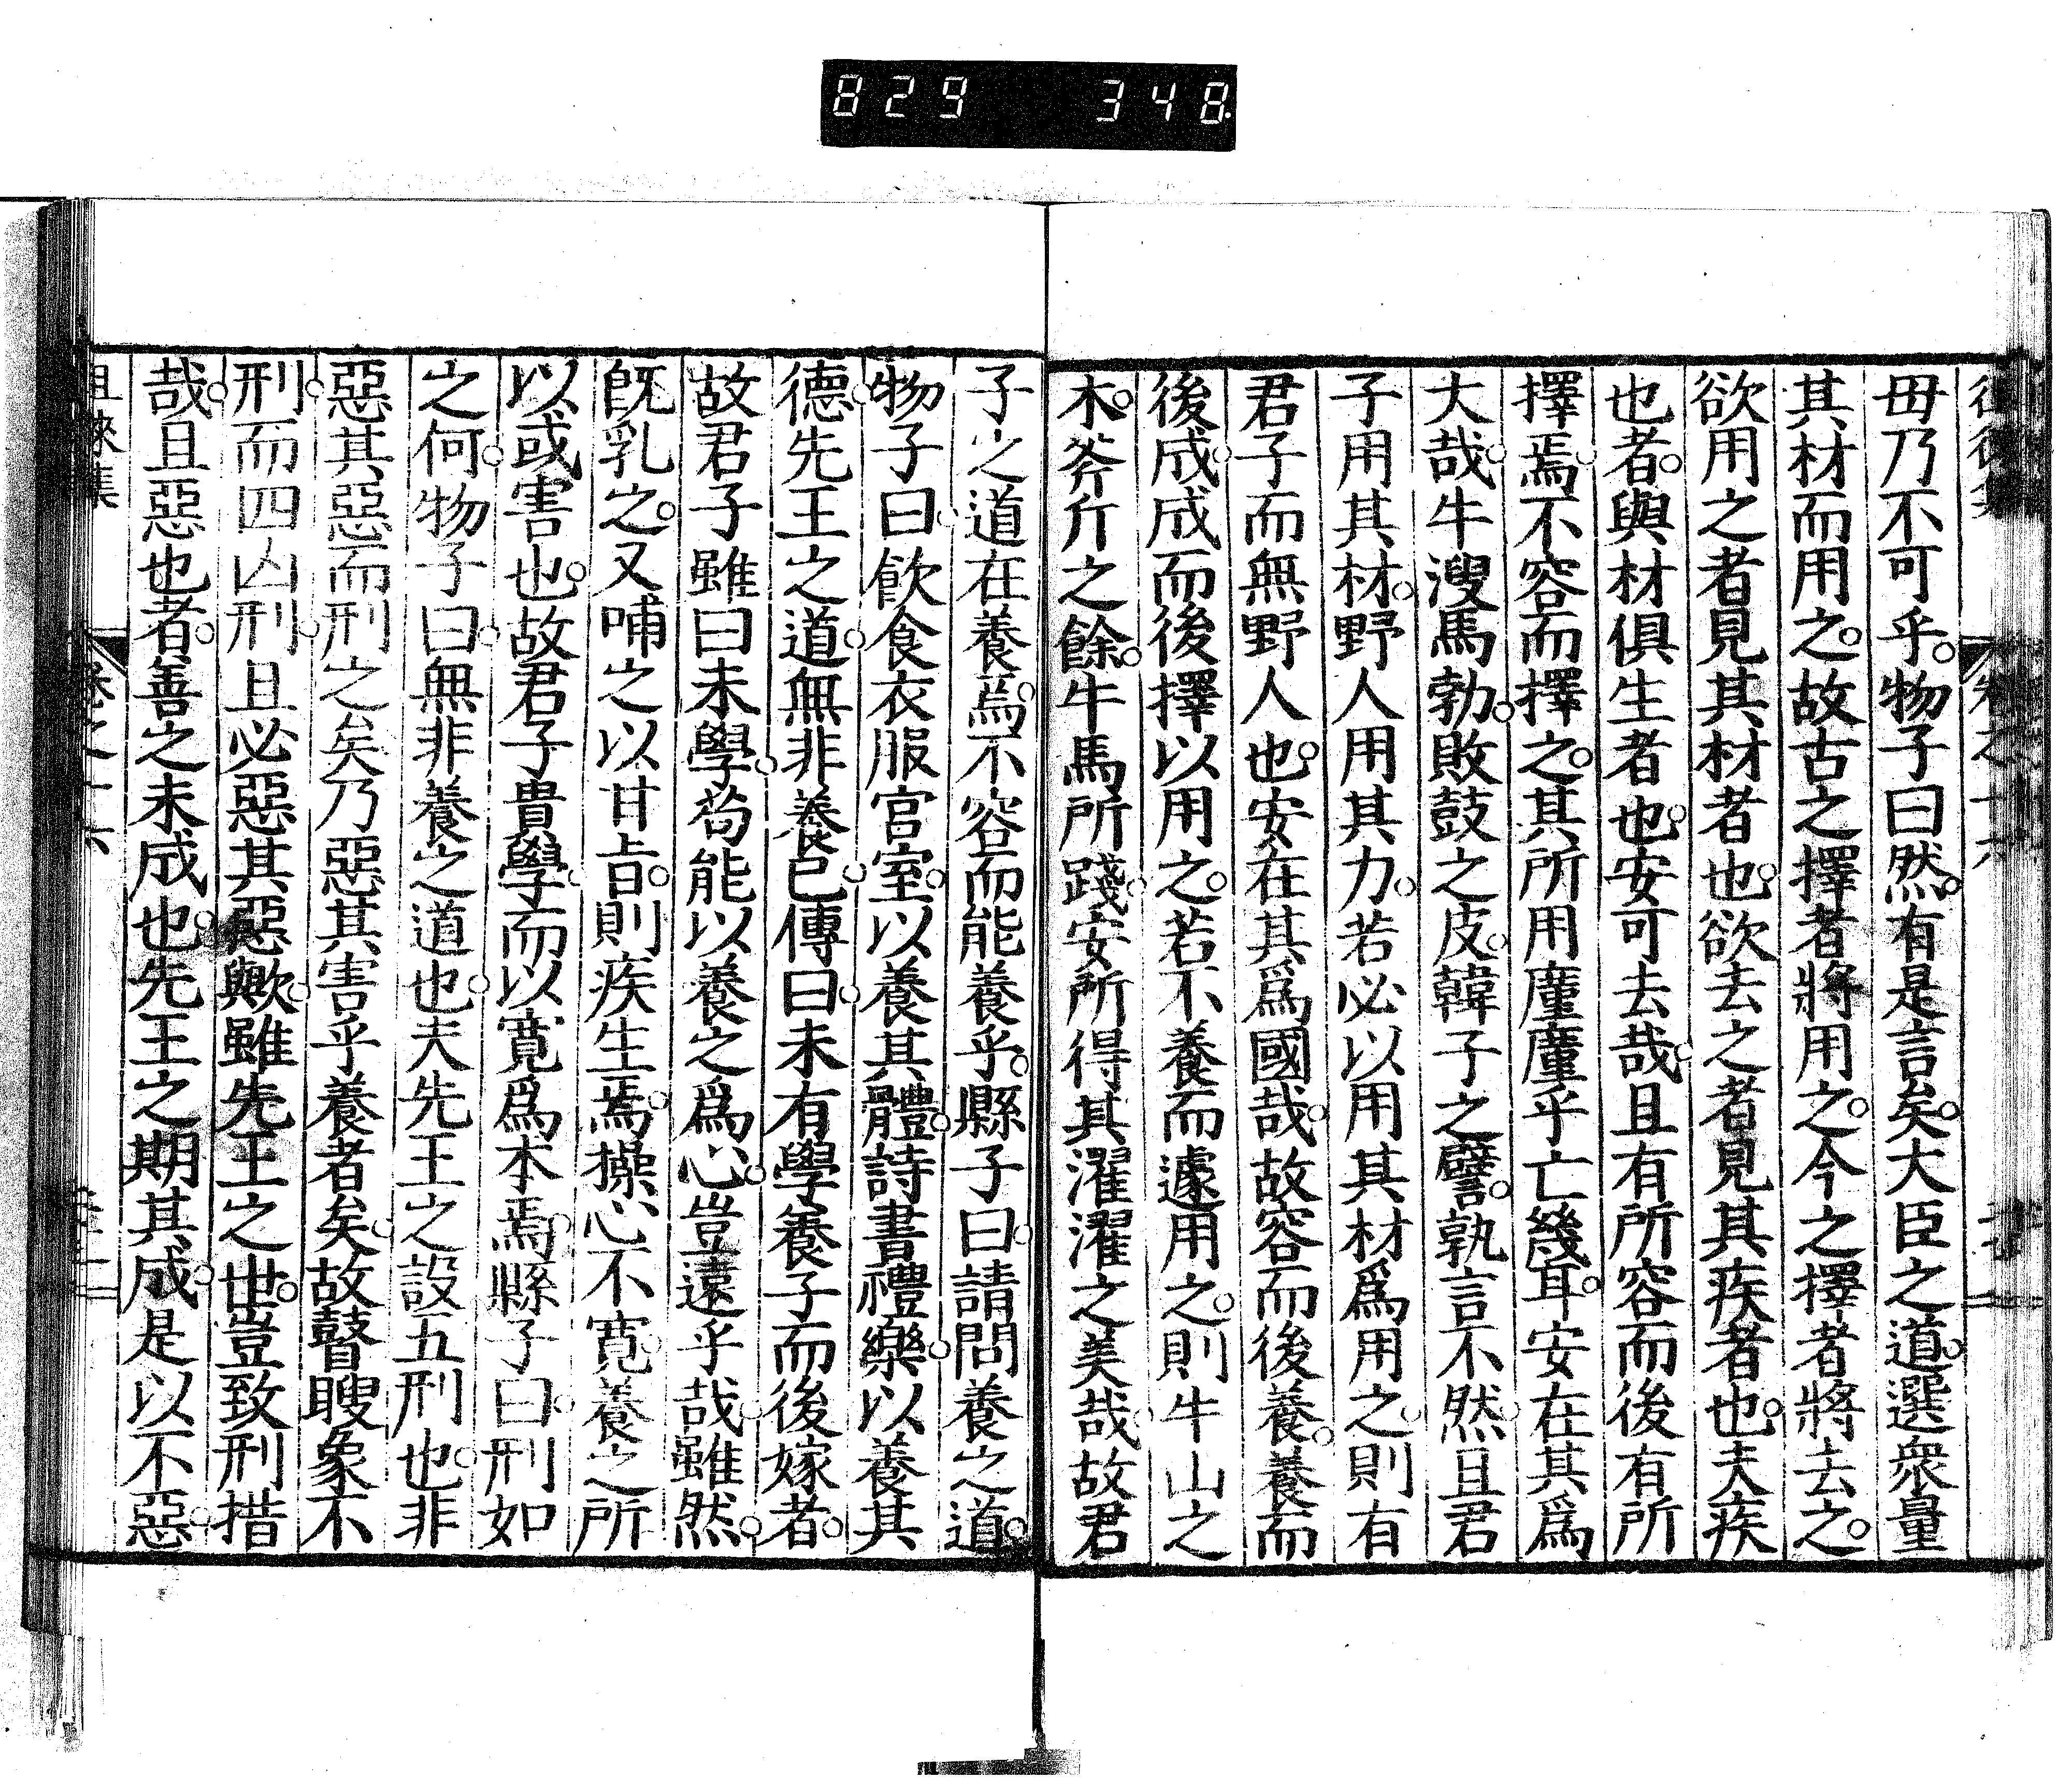 829 348.
毋乃不可乎。物子曰然。有是言矣。大臣之道。選衆量
其材而用之。故古之擇者將用之。今之擇者將去之。
欲用之者見其材者也。欲去之者見其疾者也。夫疾
也者。與材俱生者也。安可去哉。且有所容而後有所
擇焉。不容而擇之。其所用廑廑乎亡幾耳。安在其爲
大哉。牛溲馬勃。敗鼓之皮。韓子之譬。孰言不然。且君
子用其材。野人用其力。若必以用其材爲用之。則有
君子而無野人也。安在其爲國哉。故容而後養。養而
後成。成而後擇以用之。若不養而遽用之。則牛山之
木。斧斤之餘。牛馬所踐。安所得其濯濯之美哉。故君
子之道在養焉。不容而能養乎。縣子曰。請問養之道。
物子曰。飮食衣服宮室。以養其體。詩書禮樂。以養其
德。先王之道。無非養已。傳曰。未有學養子而後嫁者。
故君子雖曰未學。苟能以養之爲心。豈遠乎哉。雖然。
旣乳之。又哺之以甘旨。則疾生焉。操心不寬。養之所
以或害也。故君子貴學。而以寬爲本焉。縣子曰。刑如
之何。物子曰。無非養之道也。夫先王之設五刑也。非
惡其惡而刑之矣。乃惡其害乎養者矣。故瞽瞍象不
刑。而四凶刑。且必惡其惡歟。雖先王之世。豈致刑措
哉。且惡也者。善之未成也。先王之期其成。是以不惡。
徠集
卷之十六